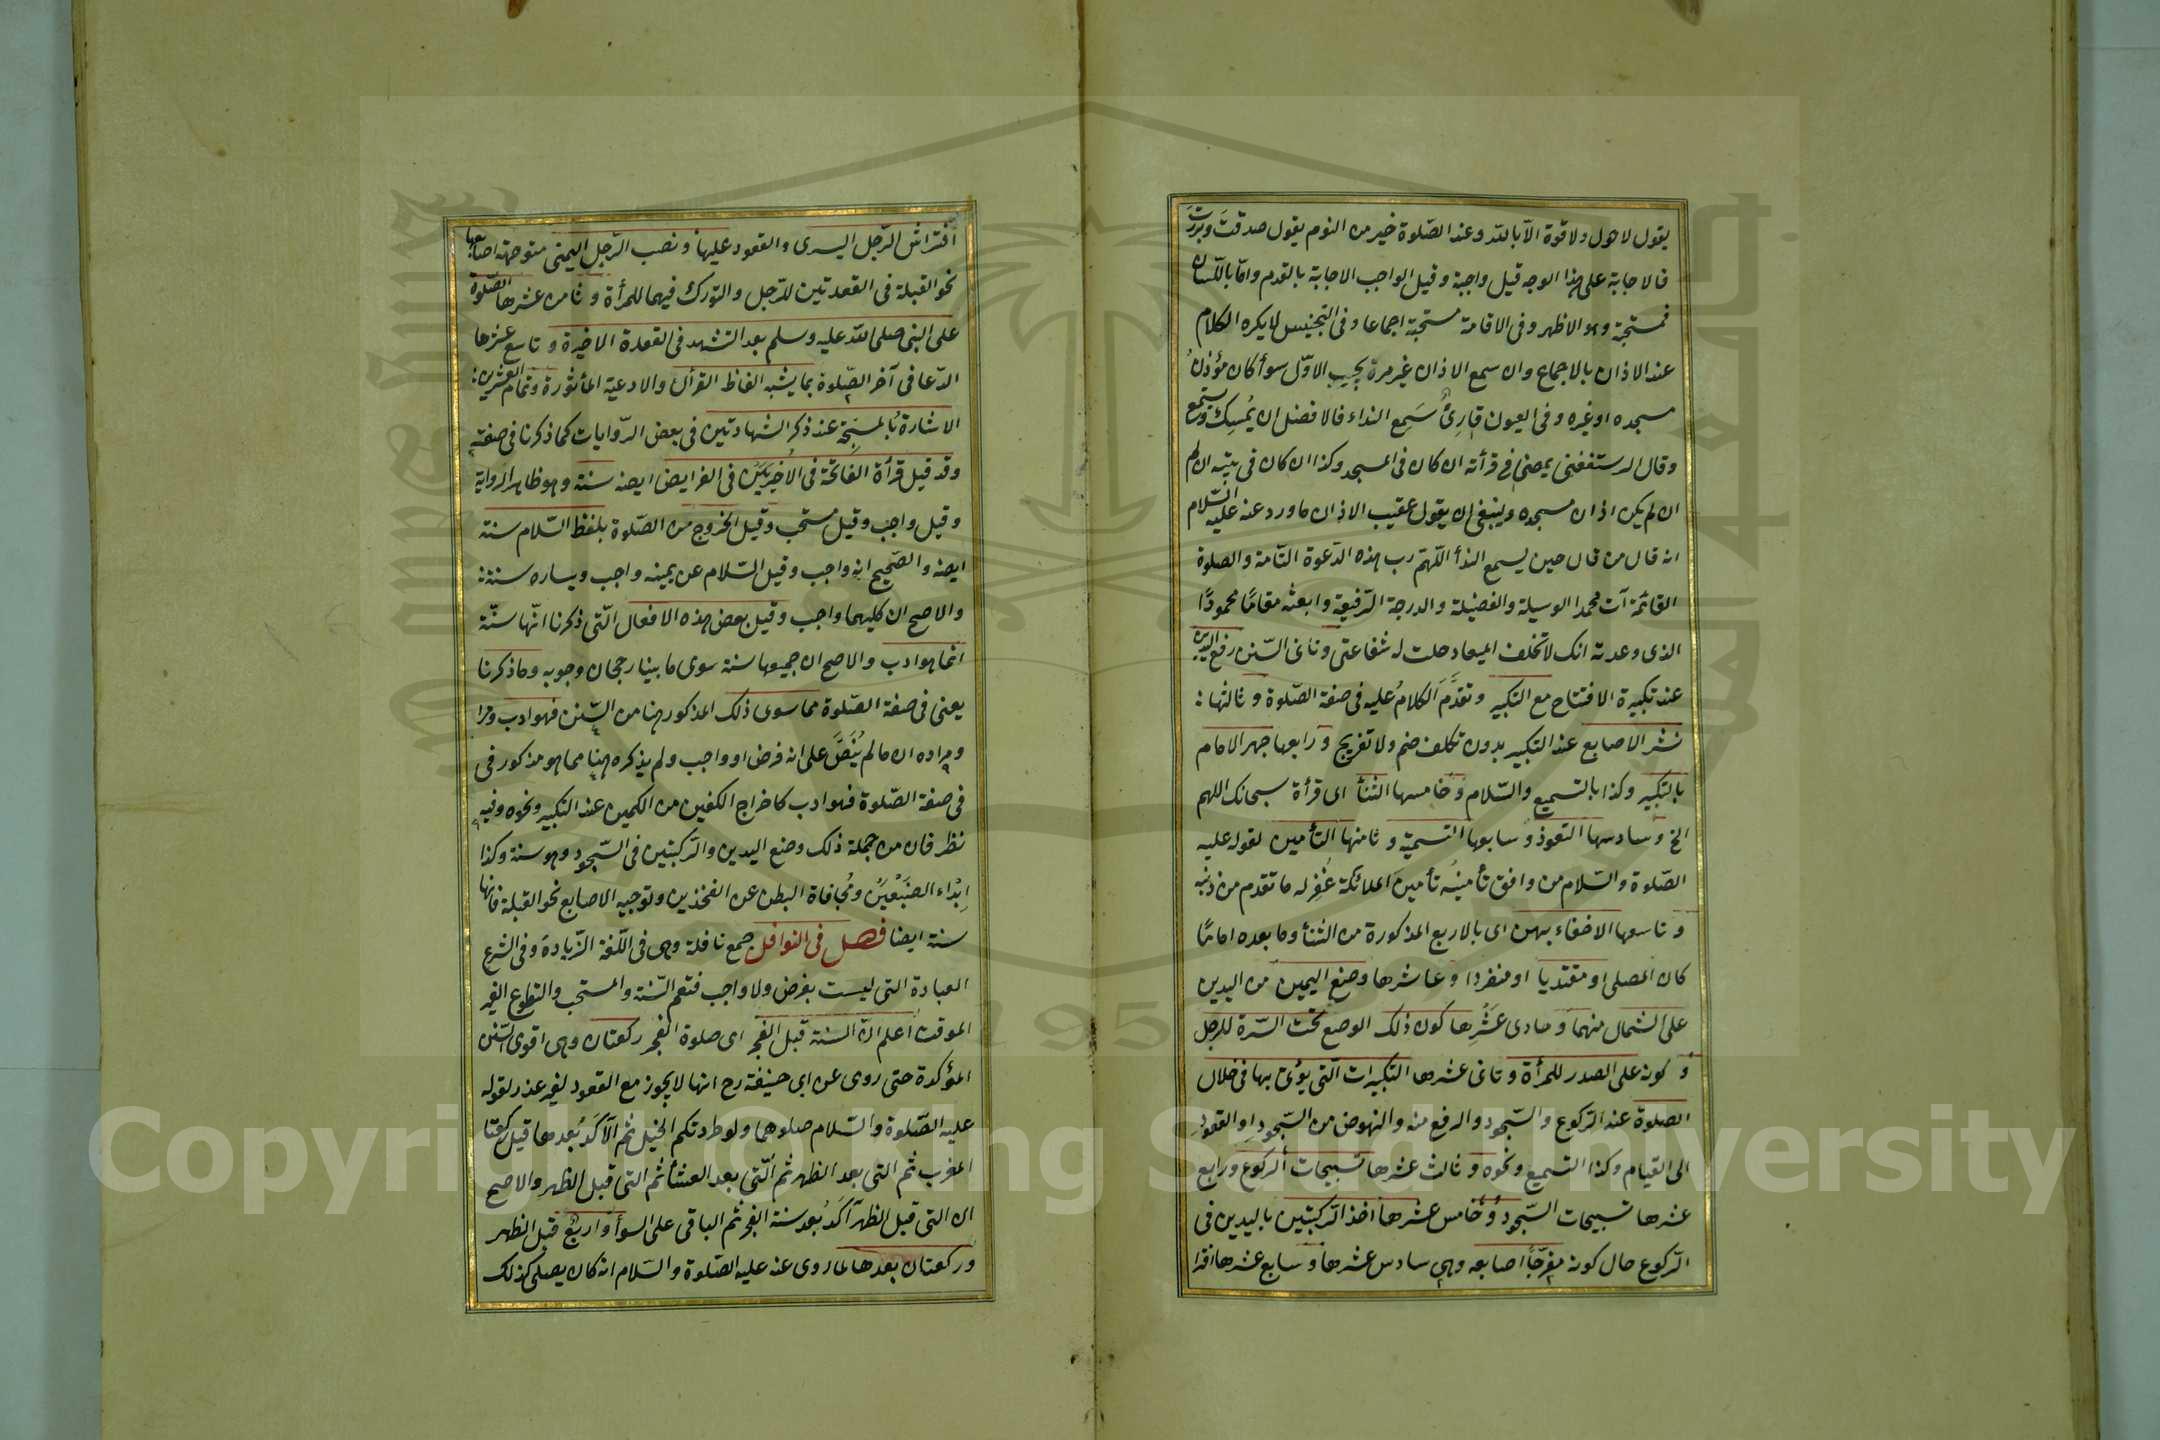 يقول لا حول ولا قوة الا بالله وعند الصلوة خير من النوم يقول صدقت وبررت
فالاجابة على هذا الوجه قيل واجبة وقيل الواجب الاجابة بالقدم واما باللسان
فمستحبة وهو الاظهر وفى الاقامة مستحبة اجماعا وفى التجنيس لا يكره الكلام
عند الاذان بالاجماع وان سمع الاذان غير مرة يجيب الاول سوأ كان مؤذن
مسجده او غيره وفى العيون قارئ سمع النداء فالافضل ان يمسك ويستمع
وقال الرستغفنى يمضى فى قرأته ان كان فى المسجد وكذا ان كان فى بيته ان لم
ان لم يكن اذان مسجده وينبغى ان يقول عقيب الاذان ما ورد عنه عليه السلام
انه قال من قال حين يسمع الندأ اللهم رب هذه الدعوة التامة والصلوة
القائمة آت محمدا الوسيلة والفضيلة والدرجة الرفيعة وابعثه مقاما محمودا
الذى وعدته انك لا تخلف الميعاد حلت له شفاعتى وثانى السنن رفع اليدين
عند تكبيرة الافتتاح مع التكبير وتقدم الكلام عليه فى صفة الصلوة وثالثها :
نشر الاصابع عند التكبير بدون تكلف ضم ولا تفريج ورابعها جهر الامام
بالتكبير وكذا بالتسميع والسلام وخامسها الثنأ اى قرأة سبحانك اللهم
الخ وسادسها التعوذ وسابعها التسمية وثامنها التأمين لقوله عليه
الصلوة والسلام من وافق تأمينه تأمين الملائكة غفر له ما تقدم من ذنبه
وتاسعها الاخفاء بهن اى بالاربع المذكورة من الثنأ وما بعده اماما
كان المصلى او مقتديا او منفردا وعاشرها وضع اليمين من اليدين
على الشمال منهما وحادى عشرها كون ذلك الوضع تحت السرة للرجل
وكونه على الصدر للمرأة وثانى عشرها التكبيرات التى يؤتى بها فى خلال
الصلوة عند الركوع والسجود والرفع منه والنهوض من السجود او القعود
الى القيام وكذا التسميع ونحوه وثالث عشرها تسبيحات الركوع ورابع
عشرها تسبيحات السجود وخامس عشرها اخذ الركبتين باليدين فى
الركوع حال كونه مفرجا اصابعه وهى سادس عشرها وسابع عشرها افترا
افتراش الرجل اليسرى والقعود عليها ونصب الرجل اليمنى متوجهة اصابعها
نحو القبلة فى القعدتين للرجل والتورك فيهما للمرأة وثامن عشرها الصلوة
على النبى صلى الله عليه وسلم بعد التشهد فى القعدة الاخيرة وتاسع عشرها
الدعا فى آخر الصلوة بما يشبه الفاظ القرأن والادعية المأثورة وتمام العشرين :
الاشارة بالمسبحة عند ذكر الشهادتين فى بعض الروايات كما ذكرنا فى صفته
وقد قيل قرأة الفاتحة فى الاخريين فى الفرايض ايضه سنة وهو ظاهر الرواية
وقيل واجب وقيل مستحب وقيل الخروج من الصلوة بلفظ السلام سنة
ايضه والصحيح انه واجب وقيل السلام عن يمينه واجب ويساره سنة :
والاصح ان كليهما واجب وقيل بعض هذه الافعال التى ذكرنا انها سنة
انما هو ادب والاصح ان جميعها سنة سوى ما بينا رجحان وجوبه وما ذكرنا
يعنى فى صفة الصلوة مما سوى ذلك المذكور هنا من السنن فهو ادب ومرا
ومراده ان ما لم ينص على انه فرض او واجب ولم يذكره هنا مما هو مذكور فى
فى صفة الصلوة فهو ادب كاخراج الكفين من الكمين عند التكبير ونحوه وفيه
نظر فان من جملة ذلك وضع اليدين والركبتين فى السجود وهو سنة وكذا
ابداء الضبعين ومجافاة البطن عن الفخذين وتوجيه الاصابع نحو القبلة فانها
سنة ايضا فصل فى النوافل جمع نافلة وهى فى اللغة الزيادة وفى الشرع
العبادة التى ليست بفرض ولا واجب فتعم السنة والمستحب والتطوع الغير
الموقت اعلم ان السنة قبل الفجر اى صلوة الفجر ركعتان وهى اقوى السنن
المؤكدة حتى روى عن ابى حنيفة رح انها لا يجوز مع القعود لغير عذر لقوله
عليه الصلوة والسلام صلوهما ولو طردتكم الخيل ثم الآكد بعدها قيل ركعتا
المغرب ثم التى بعد الظهر ثم التى بعد العشأ ثم التى قبل الظهر والاصح
ان التى قبل الظهر آكد بعد سنة الفجر ثم الباقى على السوأ واربع قبل الظهر
وركعتان بعدها لما روى عنه عليه الصلوة والسلام انه كان يصلى كذلك
Copyright © King Saud University